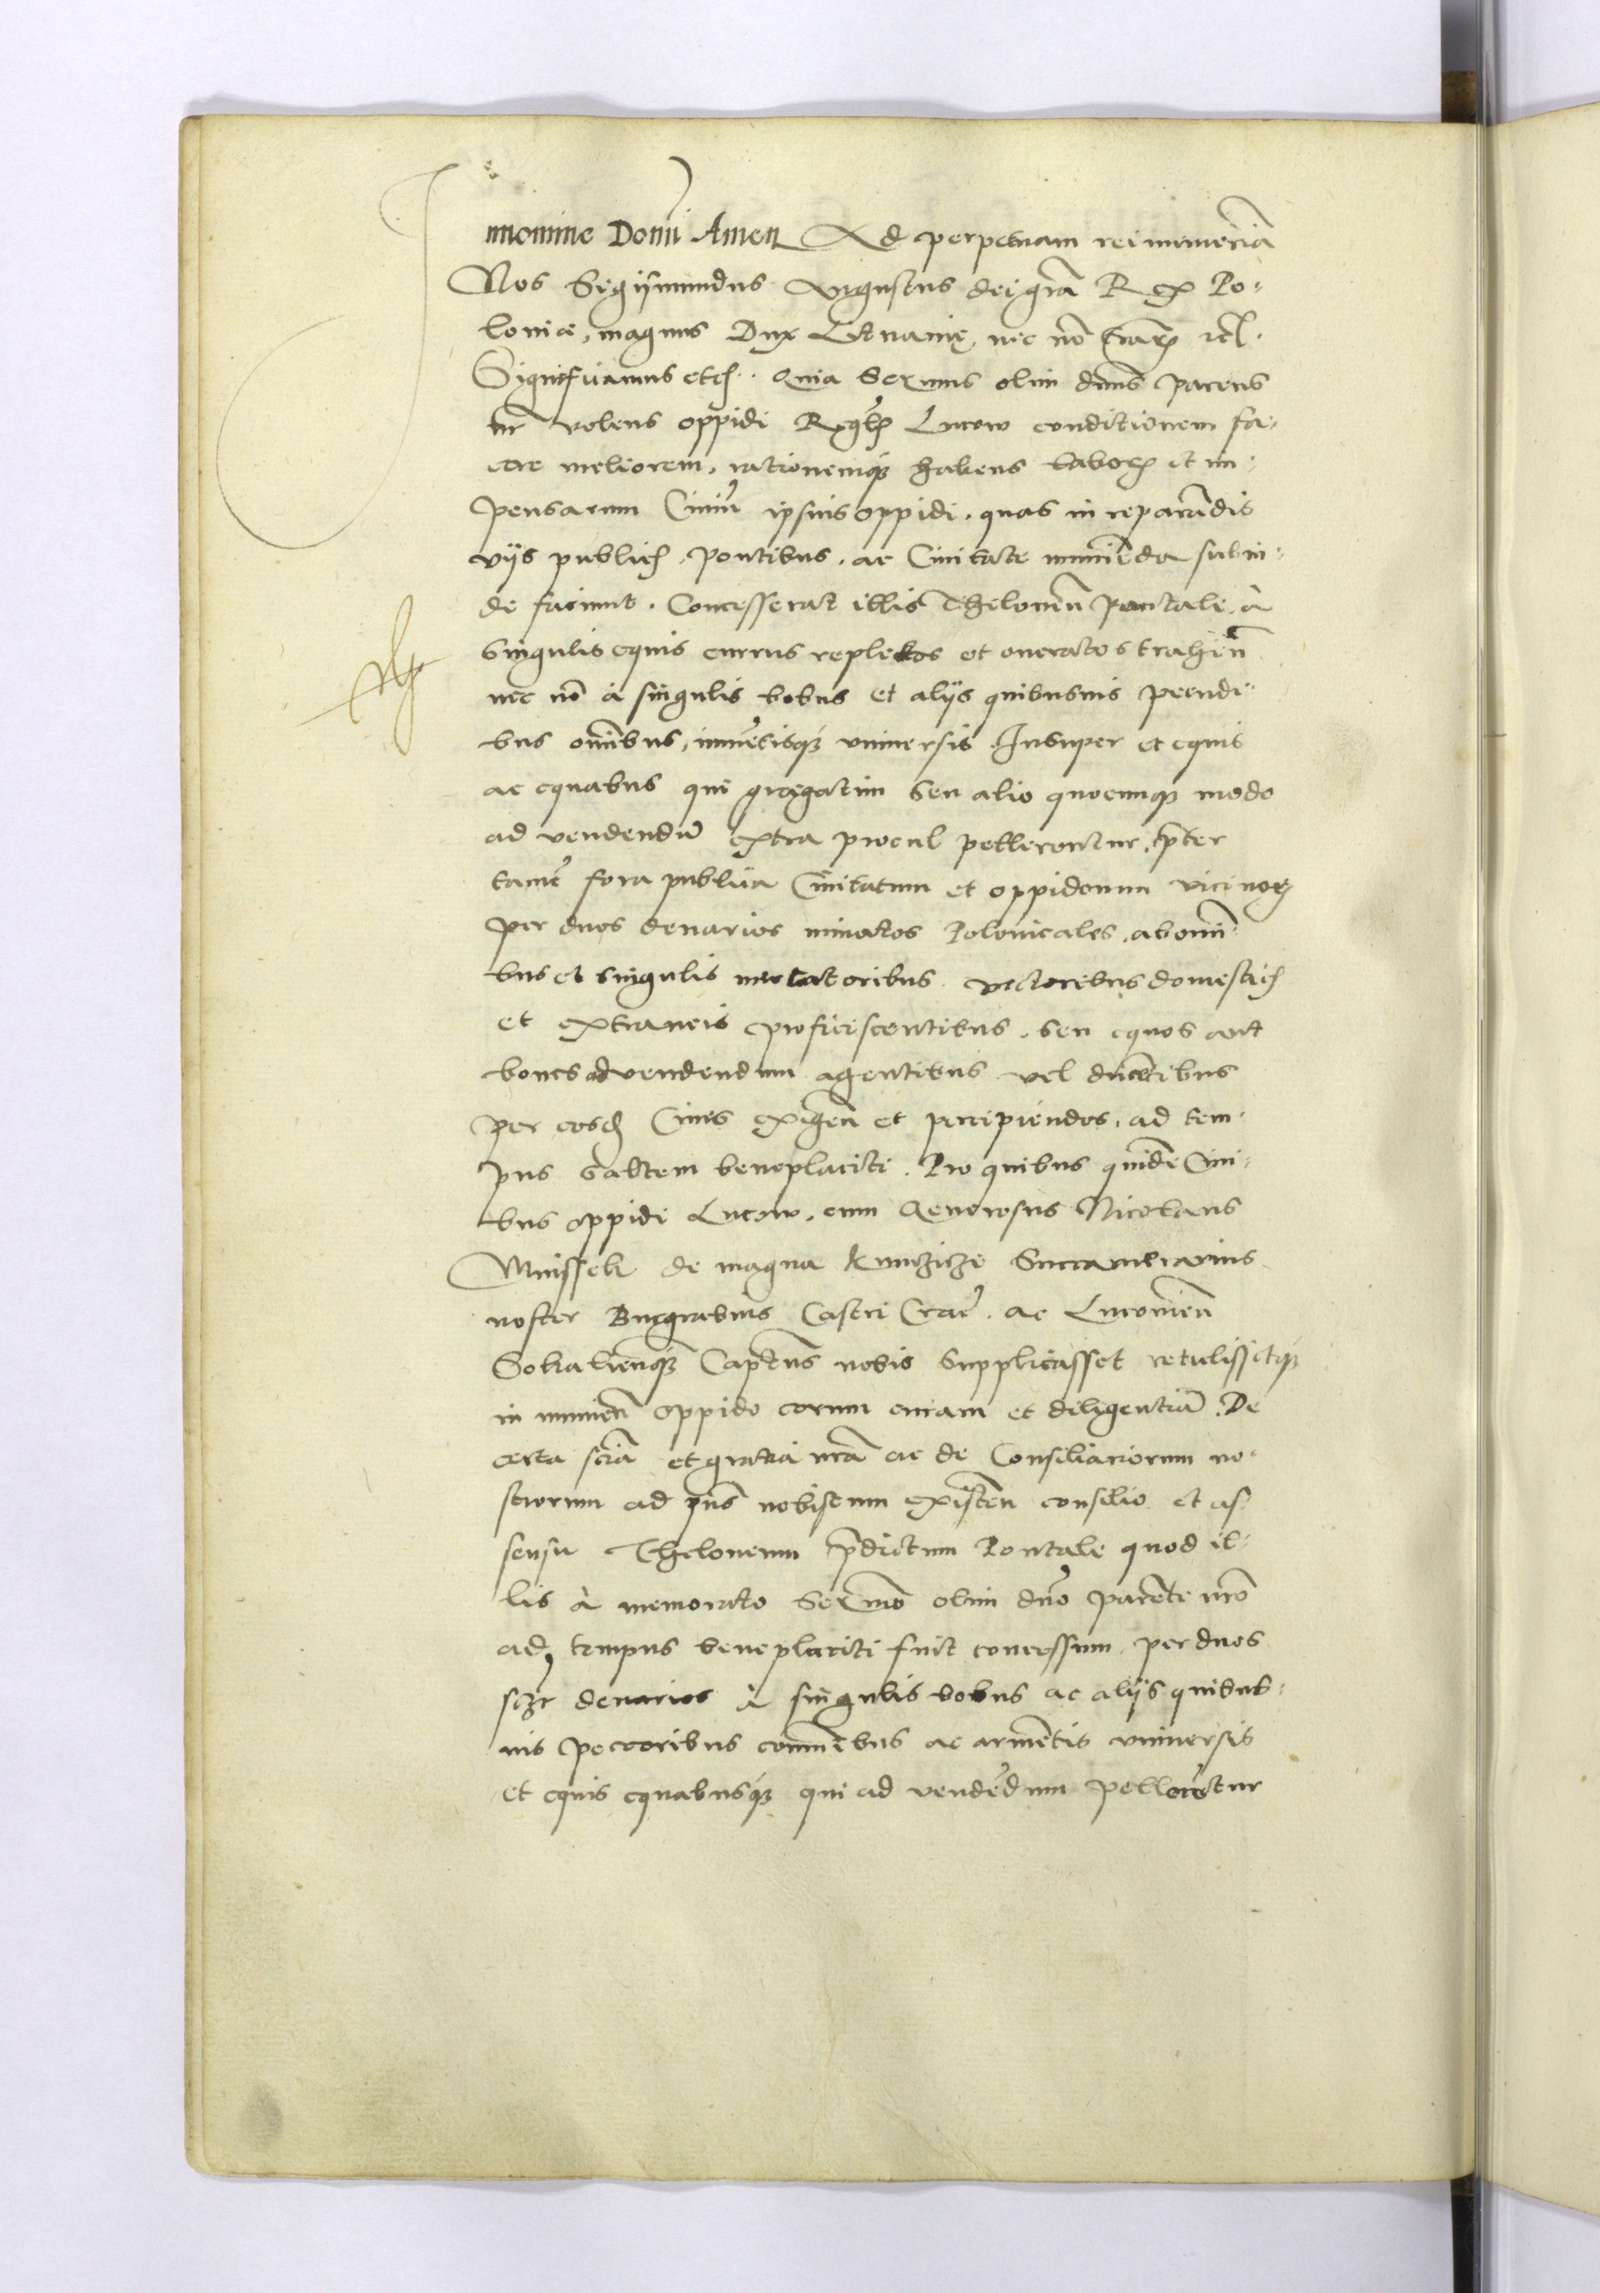 In nomine Domi Amen Ad perpetuam rei memoriā
Nos Sigismundus Augustus dei grā Rex Po-
loniæ, magnus Dux Lituanię, nec nō terarꝫ
Significamus etc. Quia Sermus olim dnus parens
nr volens oppidi Lucow conditionem fa-
cere meliorem, rationemqꝫ habens laborꝫ et im-
pensarum Ciuiū ipsius oppidi, quas in reparādis
vijs public, pontibus, ac Ciuitate muniēda subin-
de faciunt. Concesserat illis Theloneū pontale, à
singulis equis currus repletos et oneratos trahen
nec nō à singulis bobus et alijs quibusuis pecudi-
bus omībus, iumētisqꝫ vniuersis. Insuper et equis
ac equabus qui gregatim seu alio quocunqꝫ modo
ad vendendū extra procul pellerentur, pter
tamē fora publica Ciuitatum et oppidorum vicinorꝫ
per duos denarios minutos Polonicales, ab omi-
bus et singulis mercatoribus vectoribus domestic
et extraneis proficiscentibus, seu equos aut
boues ad vendendum agentibus vel ducētibus
per eosd Ciues exigen et percipiendos, ad tem-
pus saltem beneplaciti. Pro quibus quidē Ciui-
bus oppidi Lucow, cum Generosus Nicolaus
Mnissek de magna Kunczicze Succamerarius
noster Burgrabius Castri Crac. ac Lucouien
Sokalienqꝫ Captus nobis supplicasset retulissetqꝫ
in munien oppido eorum curam et diligentiā. De
certa sciā et gratia nrā ac de Consiliariorum no-
strorum ad pns nobiscum existen consilio et as-
sensu Theloneum pdictum Pontale quod il-
lis à memorato Sermo olim dno parēte nro
ad tempus beneplaciti fuit concessum per duos
denarios à singulis bobus ac alijs quibus-
uis pecoribus omībus ac armētis vniuersis
et equis equabusqꝫ qui ad vendēdum pellerētur